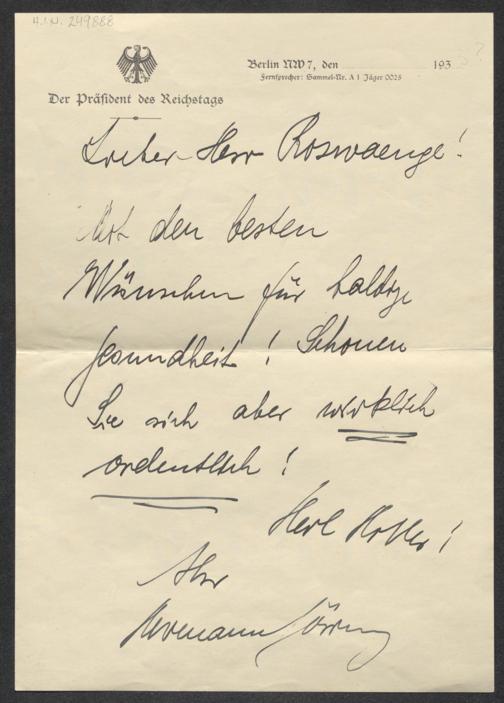 H.I.N. 249888
Berlin NW 7, den 193 3?
Fernsprecher: Sammel-Nr. A 1 Jäger 0025
Der Präsident des Reichstags
Lieber Herr Roswaenge!
Mit den besten
Wünschen für baldige
Gesundheit! Schonen
Sie sich aber wirklich
ordentlich!
Heil Hitler!
Ihr
Hermann Göring